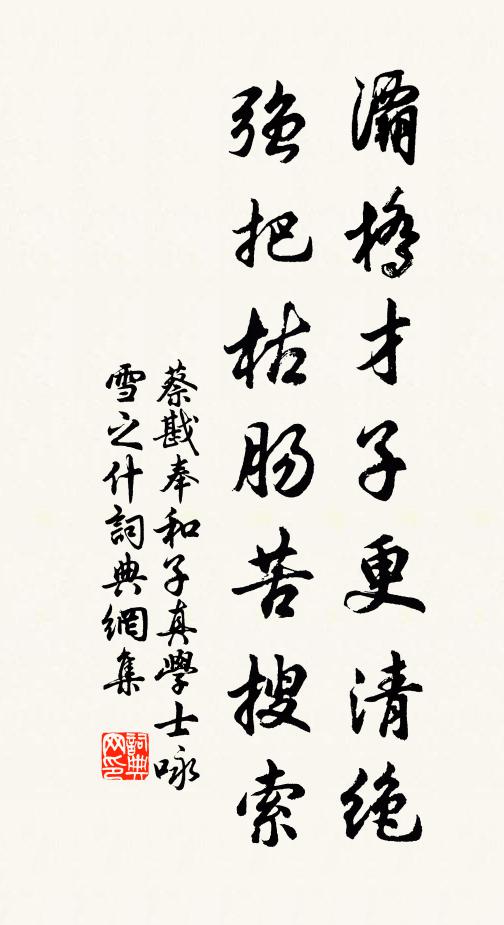 灞橋才子更清絶
強把枯肠苦搜索
蔡戡奉和子真學士咏
雪之什詞典網集
詞典
网印